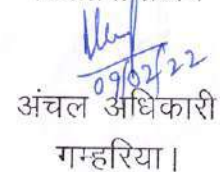 09/02/22
अंचल अधिकारी
गम्हरिया।